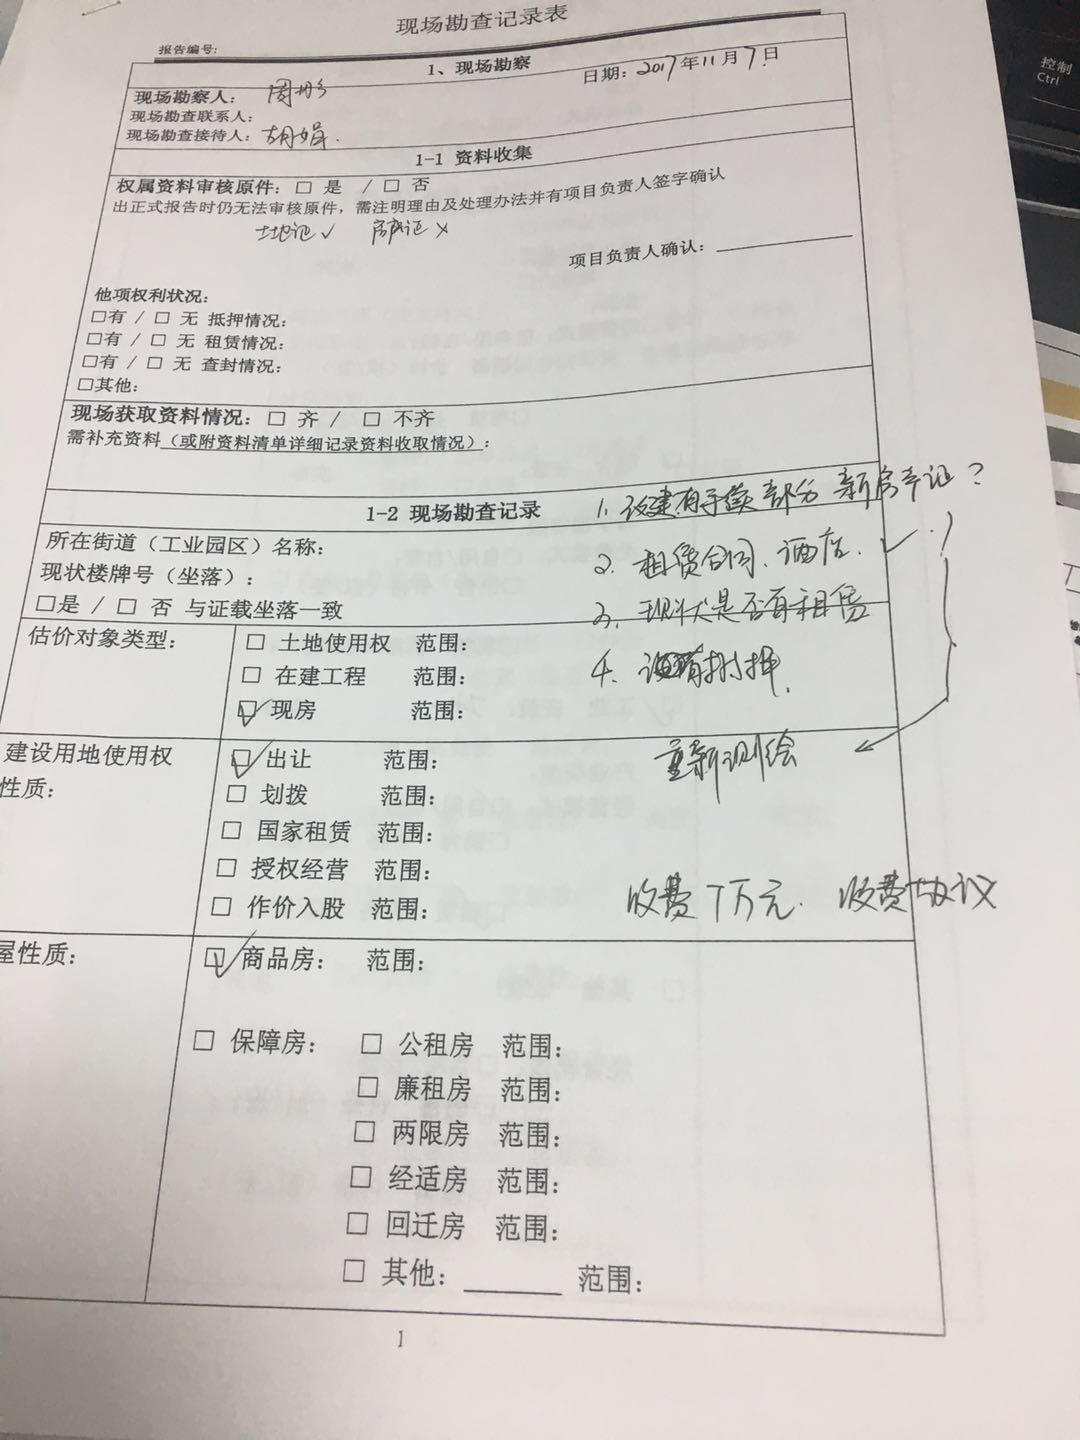 现场勘查记录表
报告编号:
1、现场勘察
现场勘察人: 周彤 日期: 2017年11月7日
现场勘查联系人:
现场勘查接待人: 胡娟.
1-1 资料收集
权属资料审核原件: □ 是 / □ 否
出正式报告时仍无法审核原件，需注明理由及处理办法并有项目负责人签字确认
土地证√ 房产证×
项目负责人确认:
他项权利状况:
□有 / □ 无 抵押情况:
□有 / □ 无 租赁情况:
□有 / □ 无 查封情况:
□其他:
现场获取资料情况: □ 齐 / □ 不齐
需补充资料（或附资料清单详细记录资料收取情况）:
1-2 现场勘查记录
1. 改建有手续 部分 新房产证?
所在街道（工业园区）名称:
2. 租赁合同、酒店. √ ?
现状楼牌号（坐落）:
□是 / □ 否 与证载坐落一致
3. 现状是否有租赁
估价对象类型: □ 土地使用权 范围:
□ 在建工程 范围:
4.
☑ 现房 范围:
建设用地使用权性质: ☑ 出让 范围:
重新测绘
□ 划拨 范围:
□ 国家租赁 范围:
□ 授权经营 范围:
□ 作价入股 范围:
收费7万元. 收费协议
屋性质: ☑ 商品房: 范围:
□ 保障房: □ 公租房 范围:
□ 廉租房 范围:
□ 两限房 范围:
□ 经适房 范围:
□ 回迁房 范围:
□ 其他: 范围:
1
控制
Ctrl